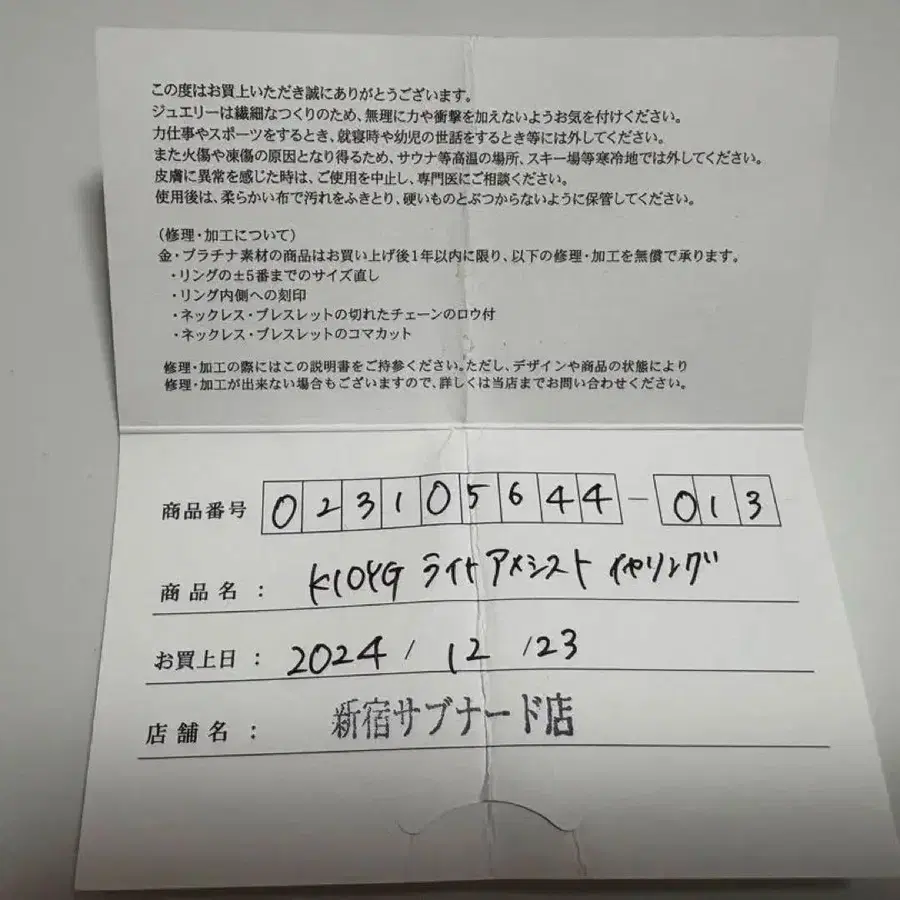 この度はお買上いただき誠にありがとうございます。
ジュエリーは繊細なつくりのため、無理に力や衝撃を加えないようお気を付けください。
力仕事やスポーツをするとき、就寝時や幼児の世話をするとき等には外してください。
また火傷や凍傷の原因となり得るため、サウナ等高温の場所、スキー場等寒冷地では外してください。
皮膚に異常を感じた時は、ご使用を中止し、専門医にご相談ください。
使用後は、柔らかい布で汚れをふきとり、硬いものとぶつからないように保管してください。
(修理・加工について)
金・プラチナ素材の商品はお買い上げ後1年以内に限り、以下の修理・加工を無償で承ります。
・リングの±5番までのサイズ直し
・リング内側への刻印
・ネックレス・ブレスレットの切れたチェーンのロウ付
・ネックレス・ブレスレットのコマカット
修理・加工の際にはこの説明書をご持参ください。ただし、デザインや商品の状態により
修理・加工が出来ない場合もございますので、詳しくは当店までお問い合わせください。
商品番号 023105644-013
商品名: K10YG ライトアメシスト イヤリング
お買上日: 2024/12/23
店舗名: 新宿サブナード店